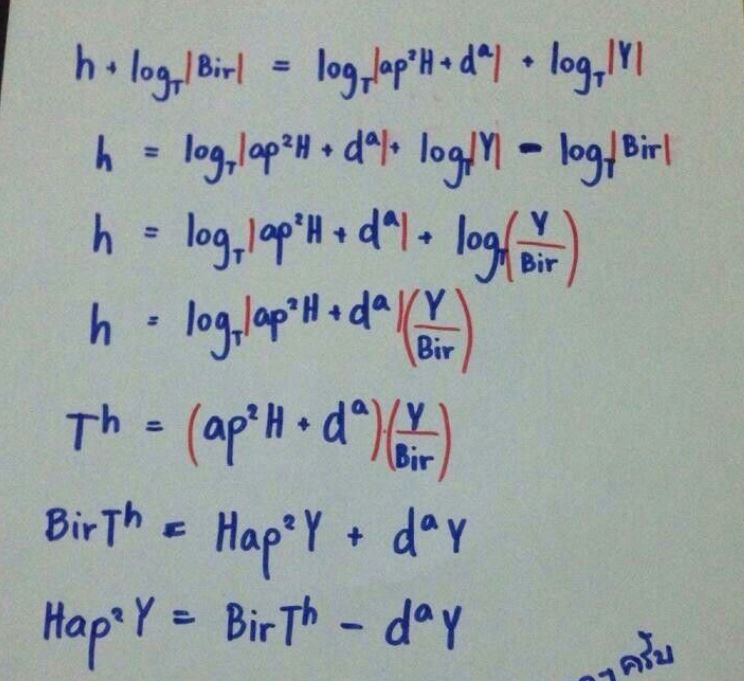 h + log_T |Bir| = log_T |ap²H + dᵃ| + log_T |Y|
h = log_T |ap²H + dᵃ| + log_T |Y| − log_T |Bir|
h = log_T |ap²H + dᵃ| + log_T (Y/Bir)
h = log_T |ap²H + dᵃ| (Y/Bir)
Tʰ = (ap²H + dᵃ)(Y/Bir)
BirTʰ = Hap²Y + dᵃY
Hap²Y = BirTʰ − dᵃY
ครับ